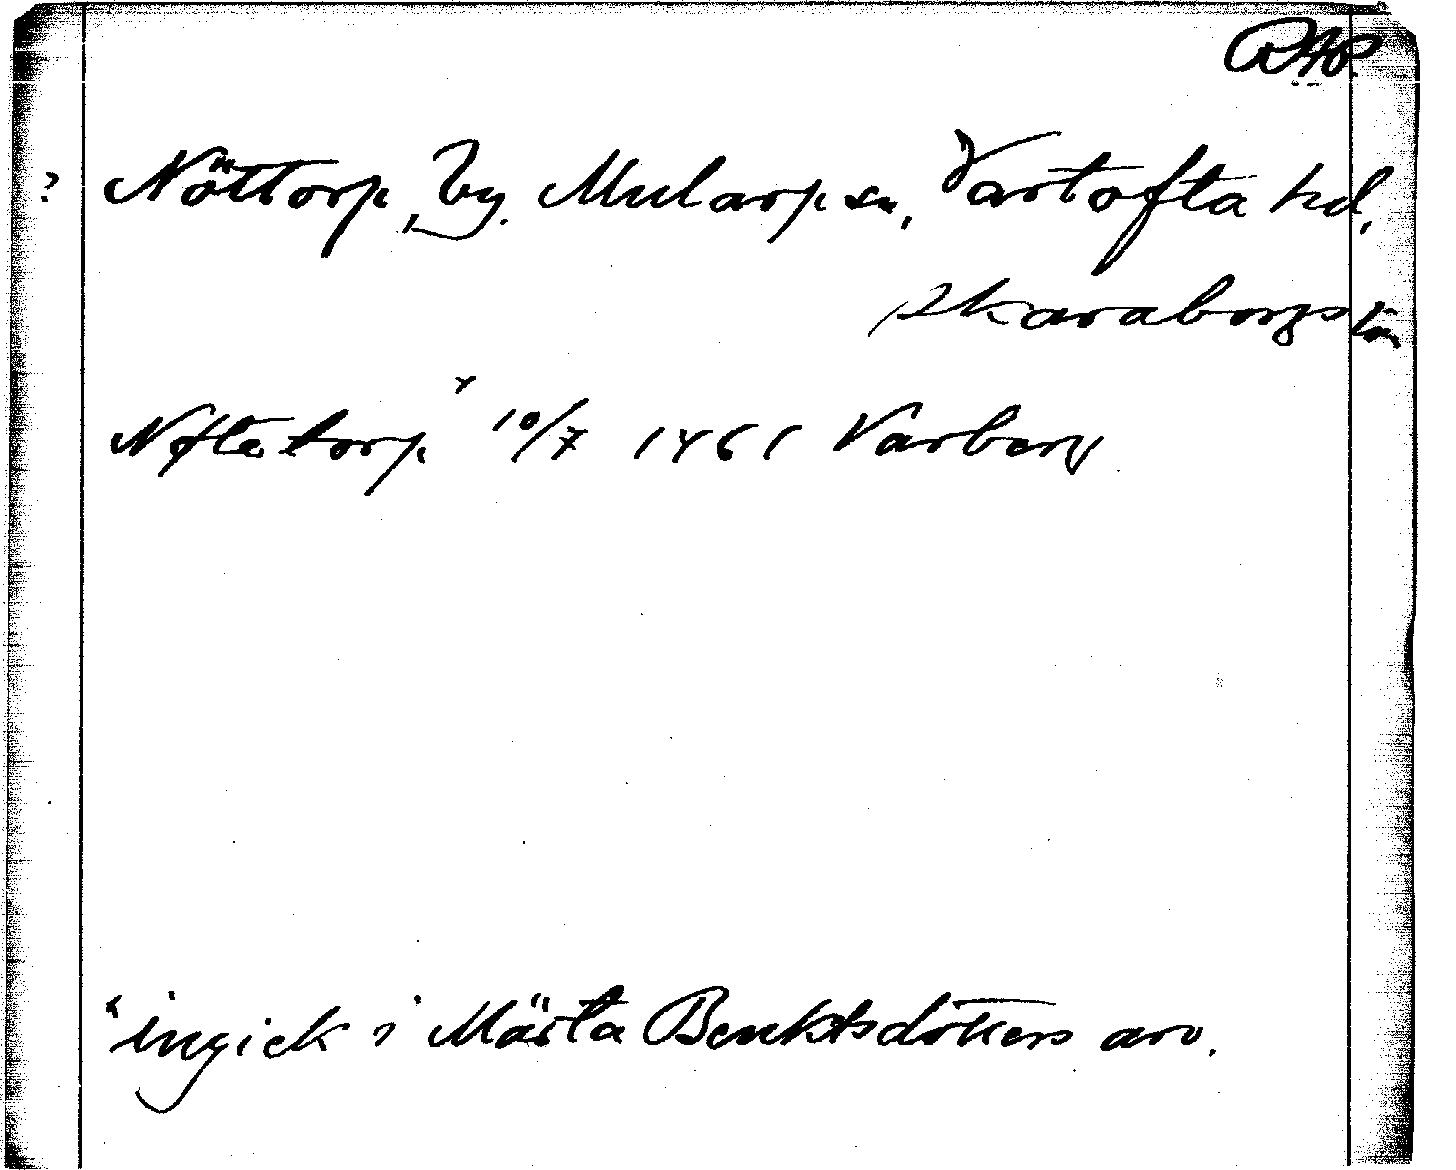 RAP.
? Nöttorp, by. Mularp sn, Vartofta hd,
Skaraborgs län
Nøttetorp ˣ 10/7 1461 Varberg
ˣ ingick i Märta Benktsdotters arv.